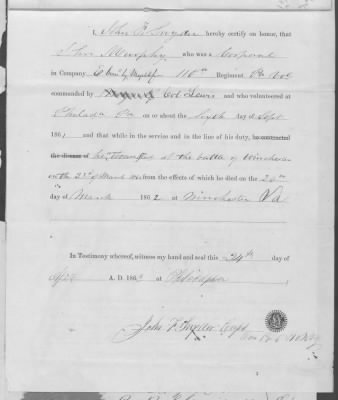 I, John F. Snyder hereby certify on honor, that
John Murphy who was a Corporal
in Company, E. Com'd by Myself 110th Regiment Pa Vols
commanded by Col Lewis and who volunteered at
Philada Pa on or about the day of Sept
1861 and that while in the service and in the line of his duty, he contracted
the disease of he wounded at the battle of Winchester
on the 23d of March from the effects of which he died on the
day of March 1862 at Winchester Va
In Testimony whereof, witness my hand and seal this 24th day of
A. D. 186
John F. Snyder Capt